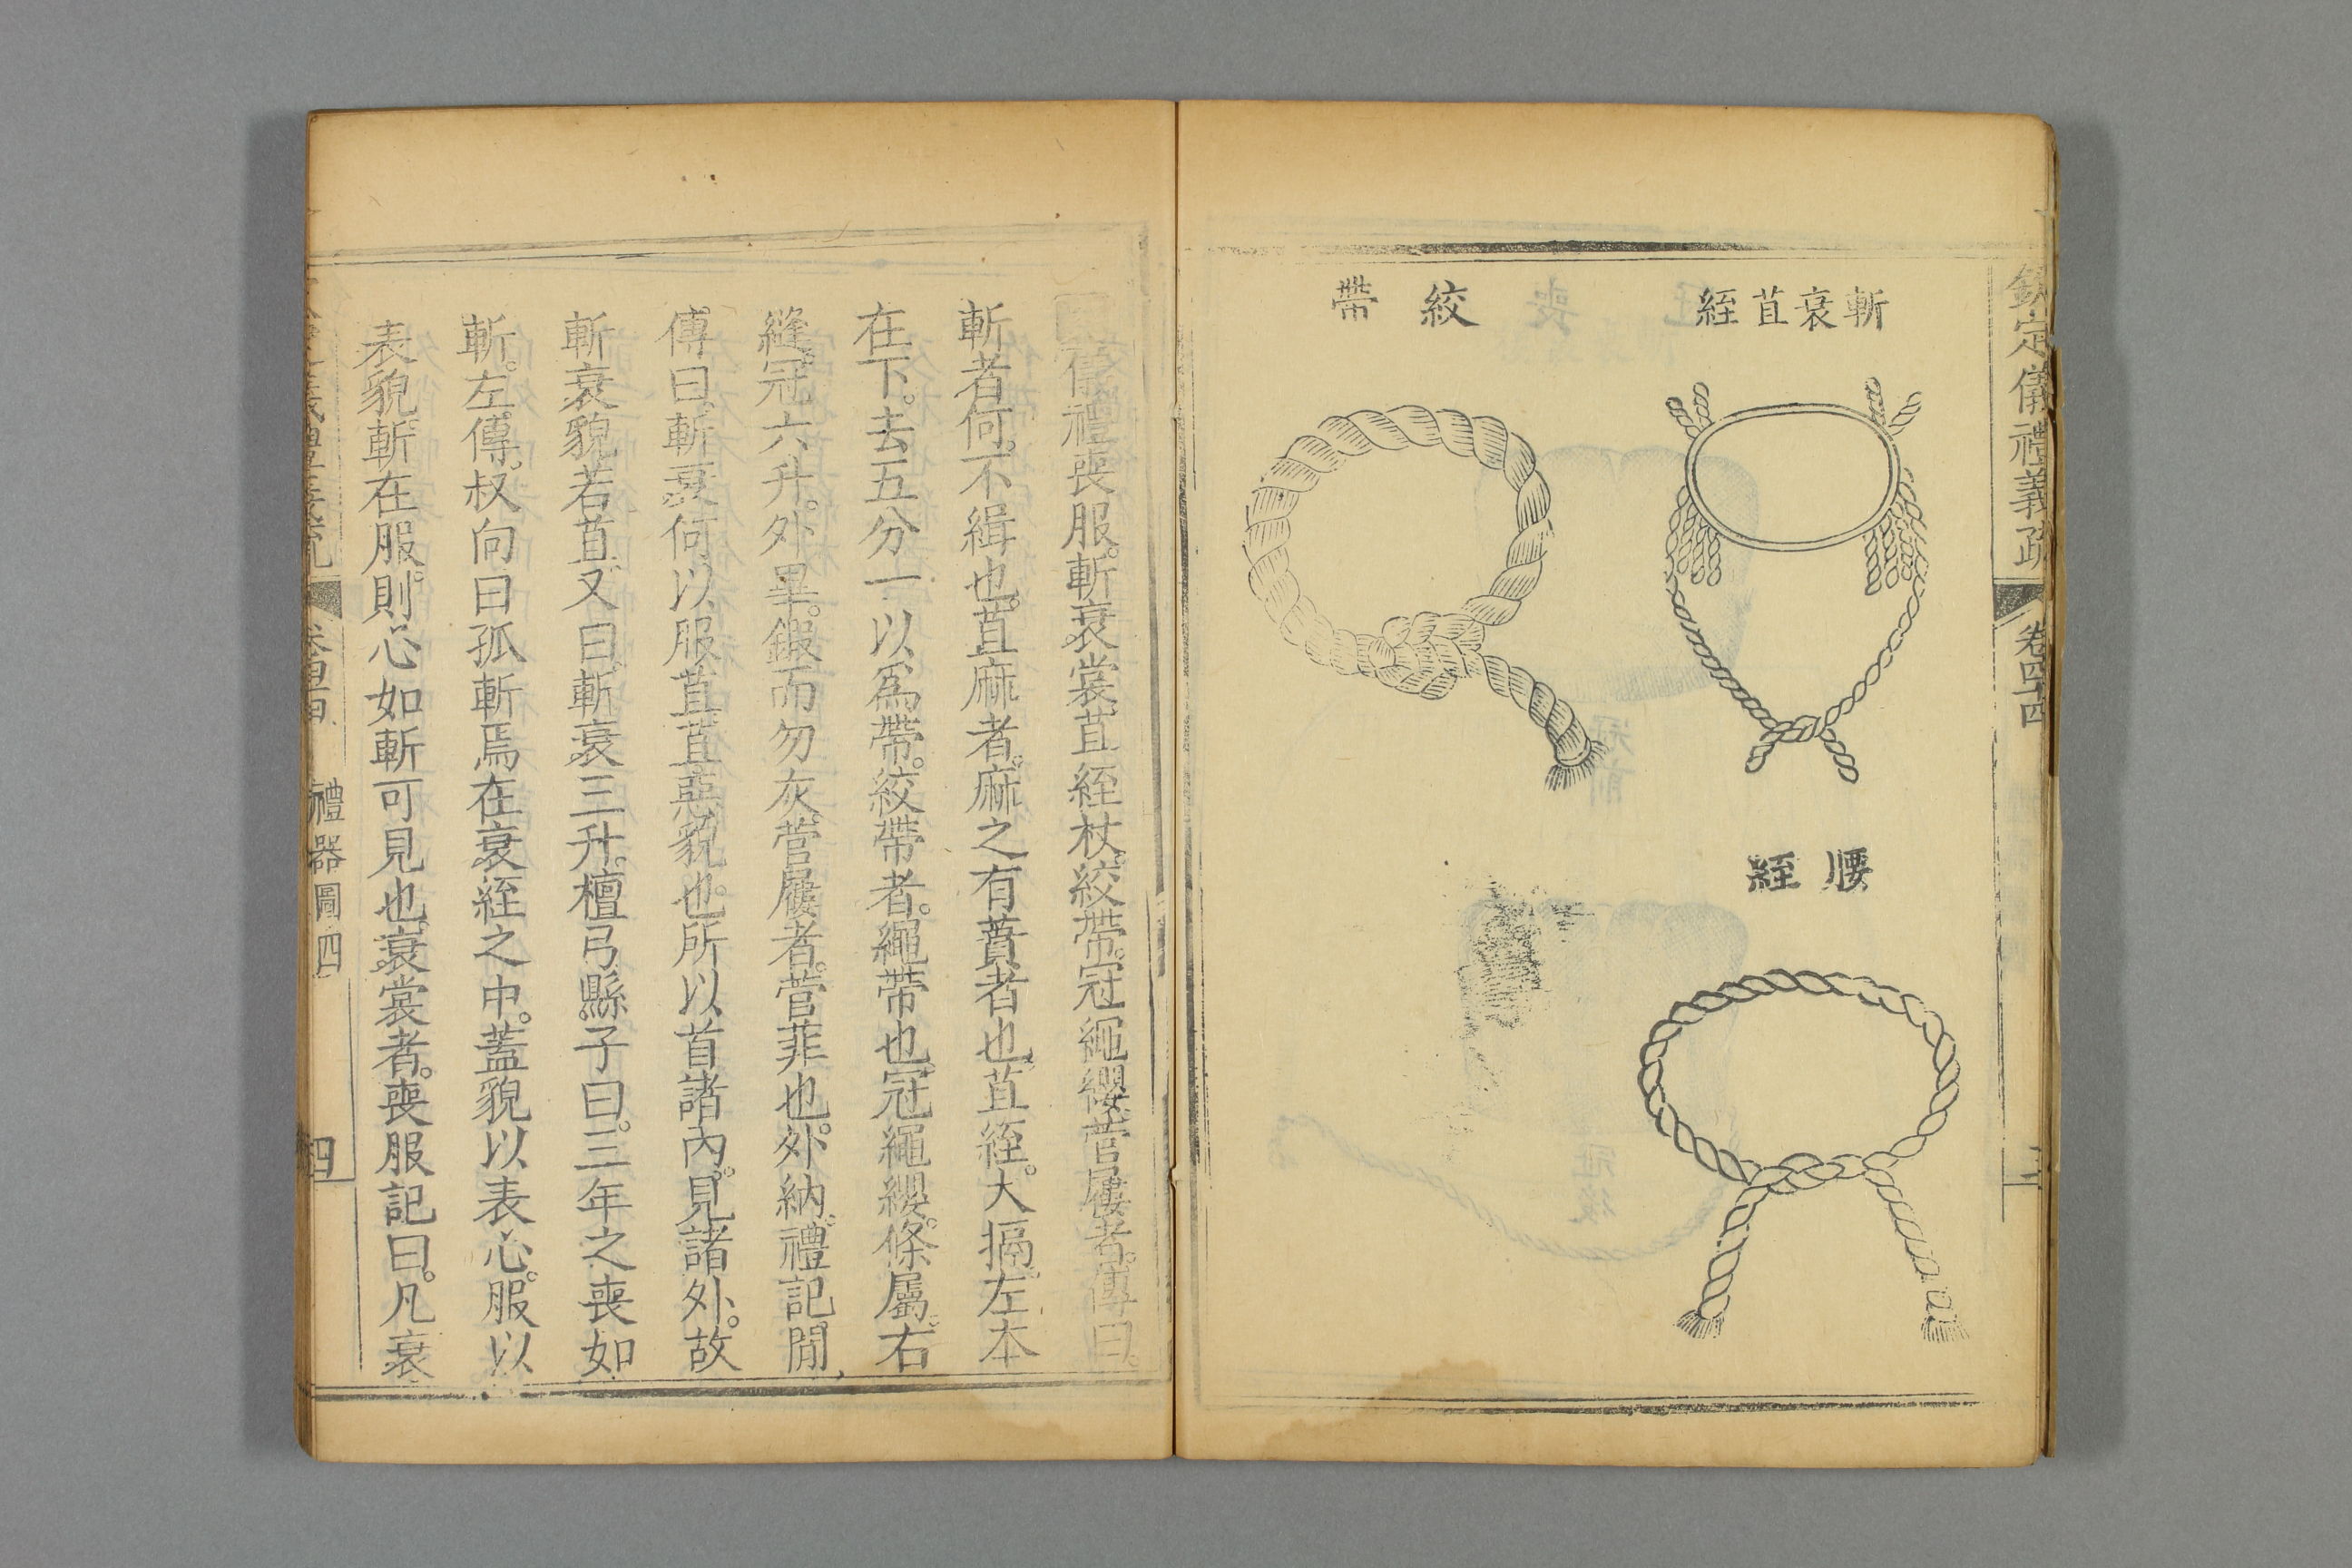 欽定儀禮義疏 卷四十四
斬衰苴絰
絞帶
腰絰
儀禮喪服。斬衰裳苴絰杖絞帶。冠繩纓菅屨者。傳曰。
斬者何。不緝也。苴麻者。麻之有蕡者也。苴絰。大搹。左本
在下。去五分一以爲帶。絞帶者。繩帶也。冠繩纓。條屬。右
縫。冠六升。外畢。鍛而勿灰。菅屨者。菅菲也。外納。禮記閒
傳曰。斬衰何以服苴。苴惡貌也。所以首諸內。見諸外。故
斬衰貌若苴。又曰。斬衰三升。檀弓縣子曰。三年之喪如
斬。左傳。叔向曰孤斬焉在衰絰之中。蓋貌以表心。服以
表貌。斬在服。則心如斬可見也。衰裳者。喪服記曰。凡衰
禮器圖四
四